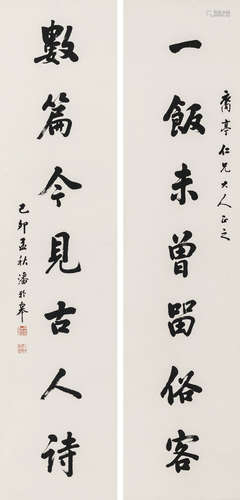 喬亭仁兄大人正之
一飯未曾留俗客
數篇今見古人詩
己卯孟秋潘龄皋